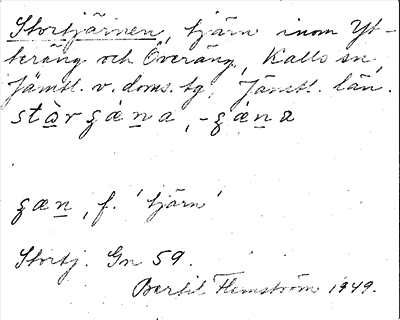 Stortjärnen, tjärn inom Yt-
teräng och Överäng, Kalls sn,
Jämtl. v. doms. tg, Jämtl. län.
stàrgæna, -gæna
gæn, f. 'tjärn'
Stortj. Gn 59.
Bertil Flemström 1949.